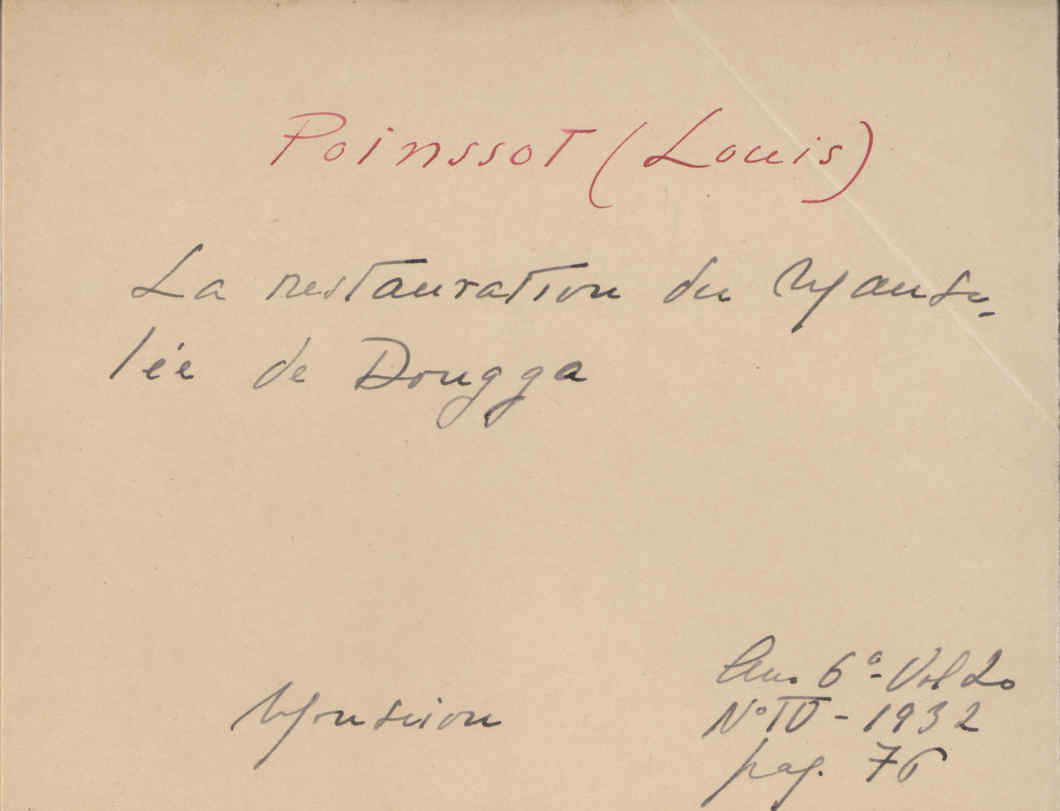 Poinssot (Louis)
La restauration du Mauso-
lée de Dougga
Mouseion
An. 6º - Vol 20
Nº IV - 1932
pag. 76